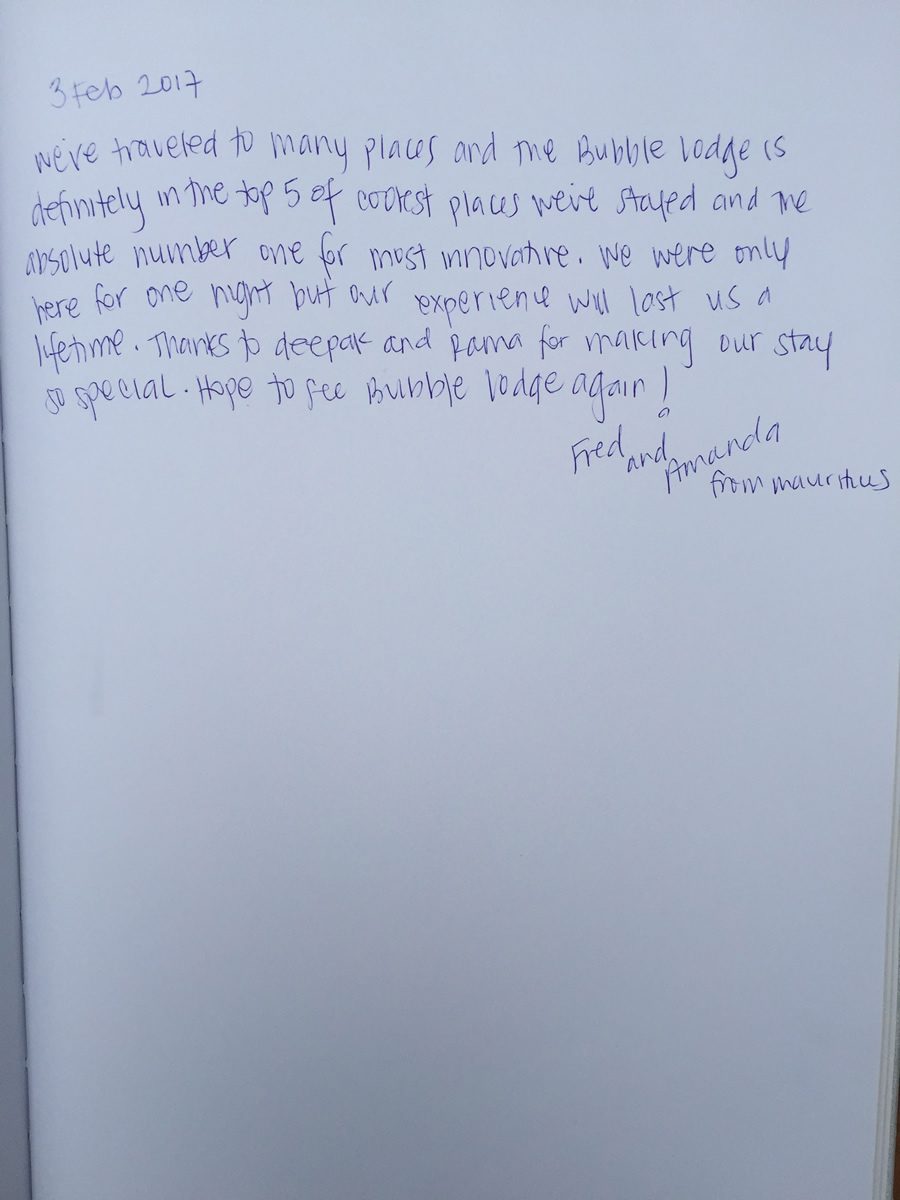 3 Feb 2017
we've traveled to many places and the Bubble lodge is
definitely in the top 5 of coolest places we've stayed and the
absolute number one for most innovative. We were only
here for one night but our experience will last us a
lifetime. Thanks to deepak and Rama for making our stay
so special. Hope to see Bubble lodge again!
Fred and Amanda
from mauritius